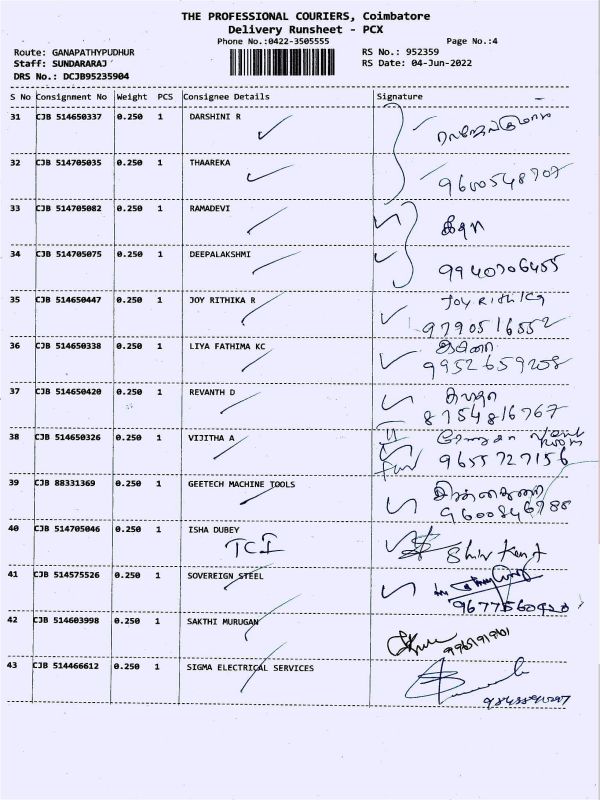 THE PROFESSIONAL COURIERS, Coimbatore
Delivery Runsheet - PCX
Phone No.:0422-3505555
Page No.:4
Route: GANAPATHYPUDHUR
RS No.: 952359
Staff: SUNDARARAJ
RS Date: 04-Jun-2022
DRS No.: DCJB95235904
S No Consignment No Weight PCS Consignee Details Signature
31 CJB 514650337 0.250 1 DARSHINI R
32 CJB 514705035 0.250 1 THAAREKA
9600548707
33 CJB 514705082 0.250 1 RAMADEVI
34 CJB 514705075 0.250 1 DEEPALAKSHMI
9940706455
35 CJB 514650447 0.250 1 JOY RITHIKA R Joy Rithika
9790516552
36 CJB 514650338 0.250 1 LIYA FATHIMA KC
9952659258
37 CJB 514650420 0.250 1 REVANTH D
8754816767
38 CJB 514650326 0.250 1 VIJITHA A
9655727156
39 CJB 88331369 0.250 1 GEETECH MACHINE TOOLS
9600846988
40 CJB 514705046 0.250 1 ISHA DUBEY
TCI
41 CJB 514575526 0.250 1 SOVEREIGN STEEL
42 CJB 514603998 0.250 1 SAKTHI MURUGAN
43 CJB 514466612 0.250 1 SIGMA ELECTRICAL SERVICES